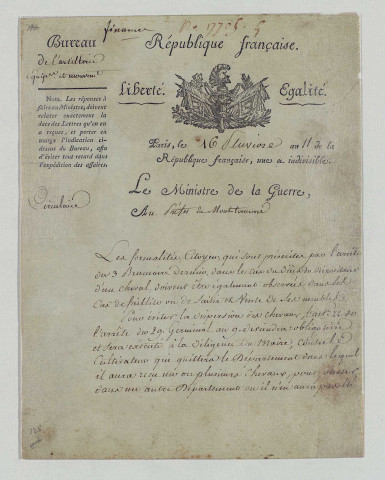 finance
Bureau
de l'artillerie
République française.
Liberté. Egalité.
Nota. Les réponses à
faire au Ministre, doivent
relater exactement la
date des Lettres qu'on en
a reçues, et porter en
marge l'indication ci-
dessus du Bureau, afin
d'éviter tout retard dans
l'expédition des affaires.
Paris, le 16 Pluviose an 11 de la
République française, une et indivisible.
Circulaire
Le Ministre de la Guerre,
Au Préfet de
Les formalités Citoyen, qui sont prescrites par l'arrêté
du 3 Brumaire dernier, dans le cas du décès du dépositaire
d'un cheval, doivent être également observées dans les
Cas de faillite ou de Saisie et Vente de ses meubles.
Pour éviter la dispersion des chevaux,
l'arrêté du 29 Germinal an 9
et sera exécuté à la diligence du Maire,
Cultivateur qui quittera le Département dans lequel
il aura reçu un ou plusieurs Chevaux, pour
dans un autre Département ou il n'en aura